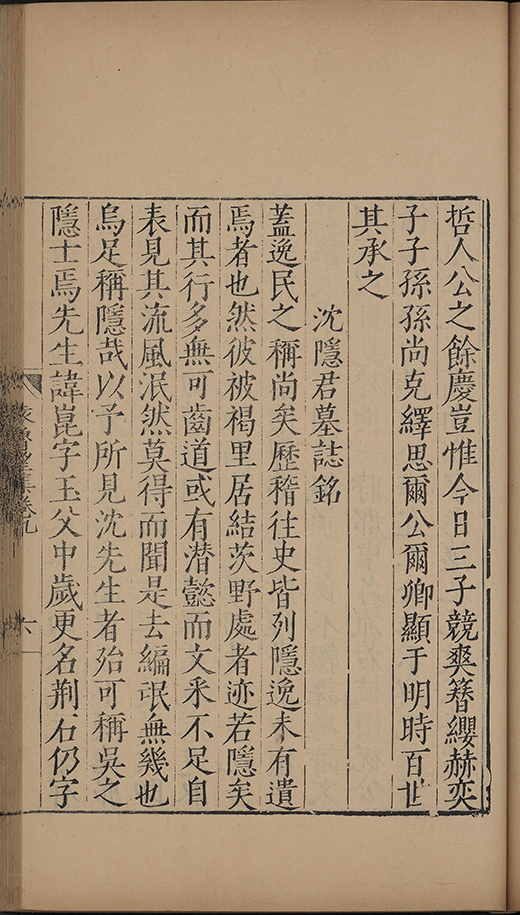 哲人公之餘慶豈惟今日三子競爽簪纓赫奕
子子孫孫尚克繹思爾公爾卿顯于明時百世
其承之
沈隱君墓誌銘
蓋逸民之稱尚矣歷稽往史皆列隱逸未有遺
焉者也然彼被褐里居結茨野處者迹若隱矣
而其行多無可齒道或有潜懿而文采不足自
表見其流風泯然莫得而聞是去編氓無幾也
烏足稱隱哉以予所見沈先生者殆可稱吳之
隱士焉先生諱崑字玉父中歲更名荆石仍字
六